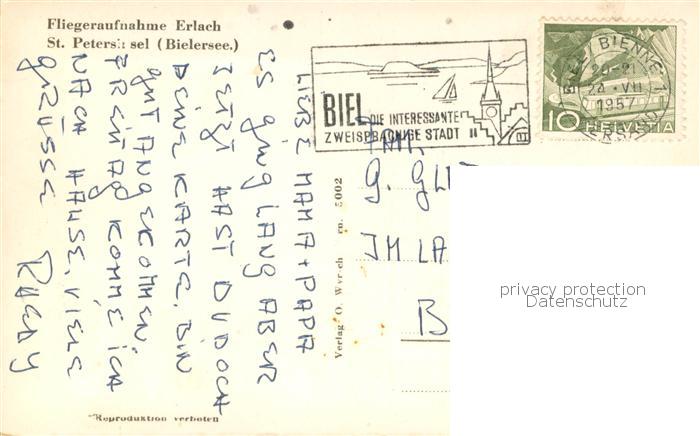 Fliegeraufnahme Erlach
St. Petersinsel (Bielersee.)
LIEBE MAMA + PAPA
ES GING LANG ABER
JETZT HAST DU DOCH
DEINE KARTE. BIN
GUT ANGEKOMMEN.
FREITAG KOMME ICH
NACH HAUSE. VIELE
GRÜSSE RUEDY
BIEL DIE INTERESSANTE
ZWEISPRACHIGE STADT
BIEL BIENNE 1
24.VII
1957
10 HELVETIA
FAM.
G.
IM LA
B
Verlag: O. Wyrsch 5002
Reproduktion verboten
privacy protection
Datenschutz